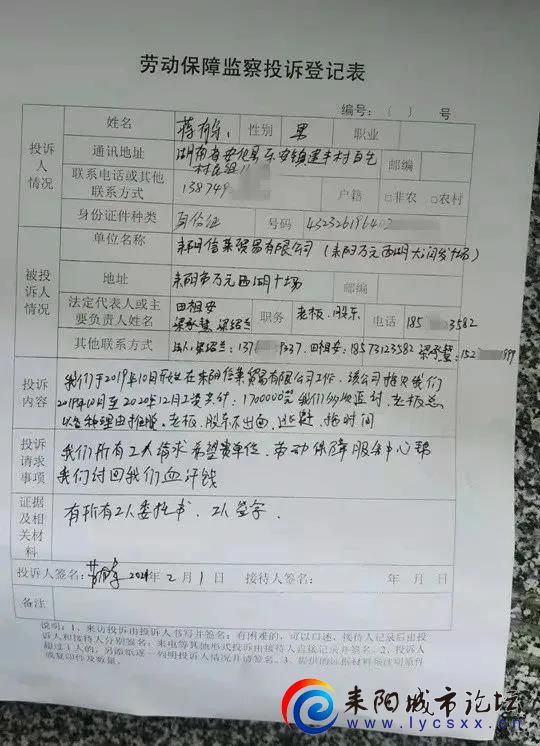 劳动保障监察投诉登记表
编号：（ ） 号
投诉人情况
姓名 性别 男 职业
通讯地址 湖南省安化县东安镇建丰村 邮编
村庄组
联系电话或其他联系方式 13874 户籍 □非农 □农村
身份证件种类 身份证 号码 432326196
被投诉人情况
单位名称 耒阳信莱贸易有限公司（耒阳万元西湖大润发广场）
地址 耒阳市万元西湖广场 邮编
法定代表人或主要负责人姓名 田祖安 职务 老板、股东 电话 185 3582
其他联系方式 法人: 田祖安: 18573123582
投诉内容
我们于2019年10月开始在耒阳信莱贸易有限公司工作，该公司拖欠我们
2019年10月至2020年12月工资共计: 1700000元我们多次追讨，老板总
以各种理由推脱。老板、股东不出面，逃避，拖时间
投诉请求事项
我们所有工人请求希望贵单位、劳动保障服务中心帮
我们讨回我们血汗钱
证据及相关材料
有所有工人委托书、工人签字.
投诉人签名: 2021年 2月 1日 接待人签名: 年 月 日
备注
说明：1、来访投诉由投诉人书写并签名；有困难的，可以口述，接待人记录后由投
诉人和接待人分别签名；来电等其他形式投诉由接待人直接记录并签名。2、投诉人
超过1人的，另添纸逐一列明投诉人情况并请签名。3、提供的证据材料须注明原件
或复印件及数量。
耒阳城市论坛
www.lycsxx.cn